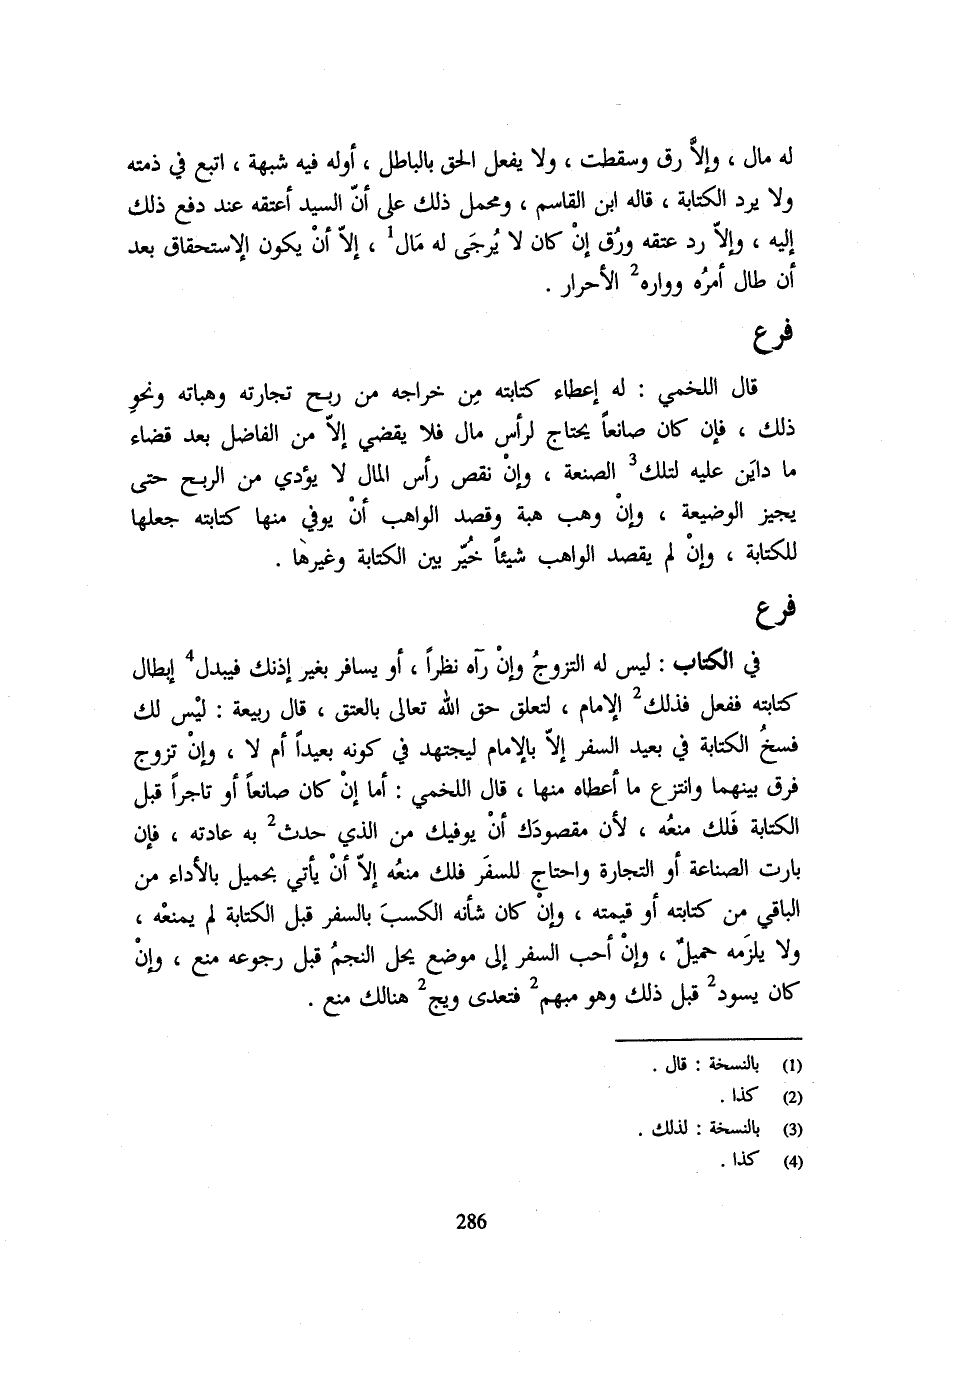 له مال ، وإلاَّ رق وسقطت ، ولا يفعل الحق بالباطل ، أوله فيه شبهة ، اتبع في ذمته
ولا يرد الكتابة ، قاله ابن القاسم ، ومحمل ذلك على أنّ السيد أعتقه عند دفع ذلك
إليه ، وإلاّ رد عتقه ورُق إنْ كان لا يُرجَى له مَال1 ، إلاّ أنْ يكون الإستحقاق بعد
أن طال أمرُه وواره2 الأحرار .
فرع
قال اللخمي : له إعطاء كتابته مِن خراجه من ربح تجارته وهباته ونحوِ
ذلك ، فإن كان صانعاً يحتاج لرأس مال فلا يقضي إلاّ من الفاضل بعد قضاء
ما دايَن عليه لتلك3 الصنعة ، وإنْ نقص رأس المال لا يؤدي من الربح حتى
يجيز الوضيعة ، وإنْ وهب هبة وقصد الواهب أنْ يوفي منها كتابته جعلها
للكتابة ، وإنْ لم يقصد الواهب شيئاً خُيّر بين الكتابة وغيرها .
فرع
في الكتاب : ليس له التزوجُ وإنْ رآه نظراً ، أو يسافر بغير إذنك فيبدل4 إبطال
كتابته ففعل فذلك2 الإمام ، لتعلق حق الله تعالى بالعتق ، قال ربيعة : ليْس لك
فسخُ الكتابة في بعيد السفر إلاّ بالإمام ليجتهد في كونه بعيداً أم لا ، وإنْ تزوج
فرق بينهما وانتزع ما أعطاه منها ، قال اللخمي : أما إنْ كان صانعاً أو تاجراً قبل
الكتابة فَلك منعُه ، لأن مقصودَك أنْ يوفيك من الذي حدث2 به عادته ، فإن
بارت الصناعة أو التجارة واحتاج للسفَر فلك منعُه إلاّ أنْ يأتي بحميل بالأداء من
الباقي من كتابته أو قيمته ، وإنْ كان شأنه الكسبَ بالسفر قبل الكتابة لم يمنعْه ،
ولا يلزَمه حميلٌ ، وإنْ أحب السفر إلى موضع يحل النجمُ قبل رجوعه منع ، وإنْ
كان يسود2 قبل ذلك وهو مبهم2 فتعدى ويج2 هنالك منع .
(1) بالنسخة : قال .
(2) كذا .
(3) بالنسخة : لذلك .
(4) كذا .
286